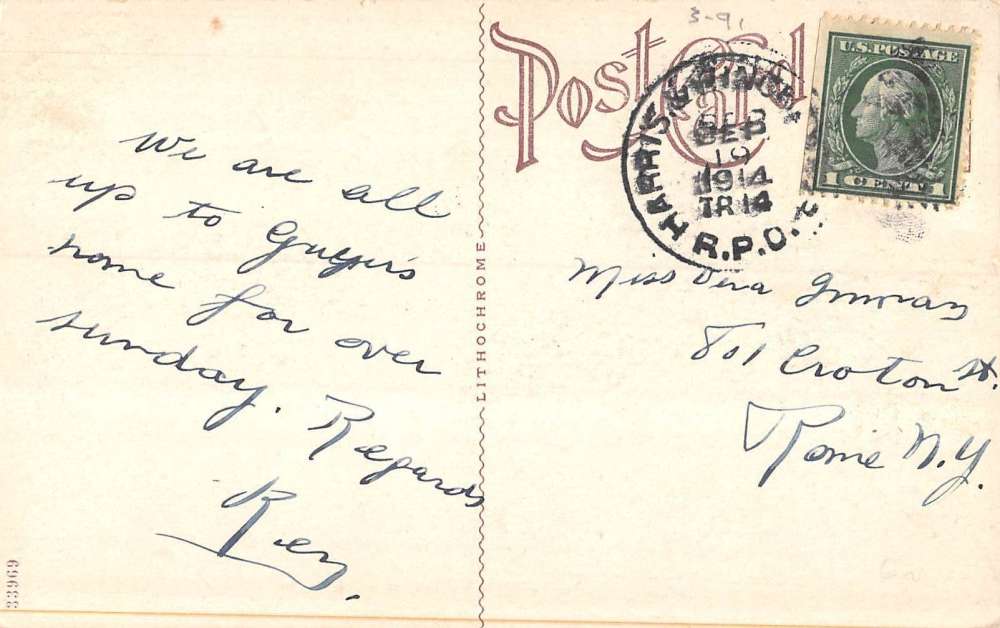 Post Card
3-91
U.S. POSTAGE
1 CENT 1
HARRIS
SEP
19
1914
TR 14
R.P.O.
We are all
up to
home for over
sunday. Regards
LITHOCHROME
Miss Vera
801 Croton St.
Rome N.Y.
33969